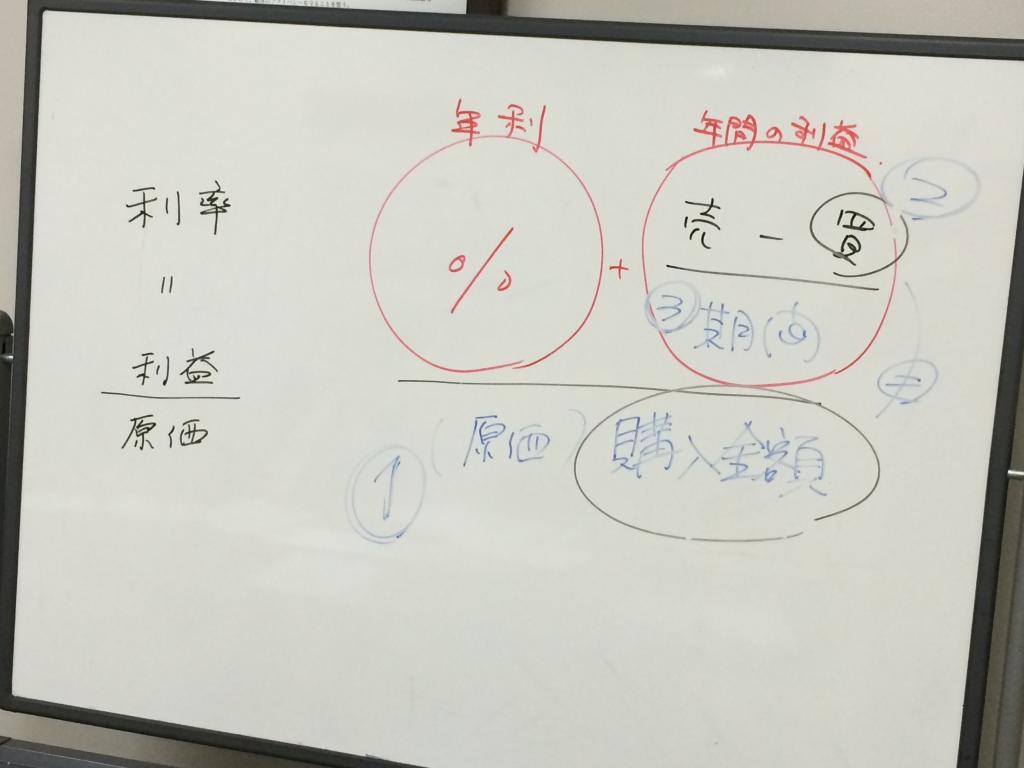 年利
年間の利益
利率
〃
利益
原価
%
+
売 − 買
②
③ 期( )
≠
① (原価) 購入金額